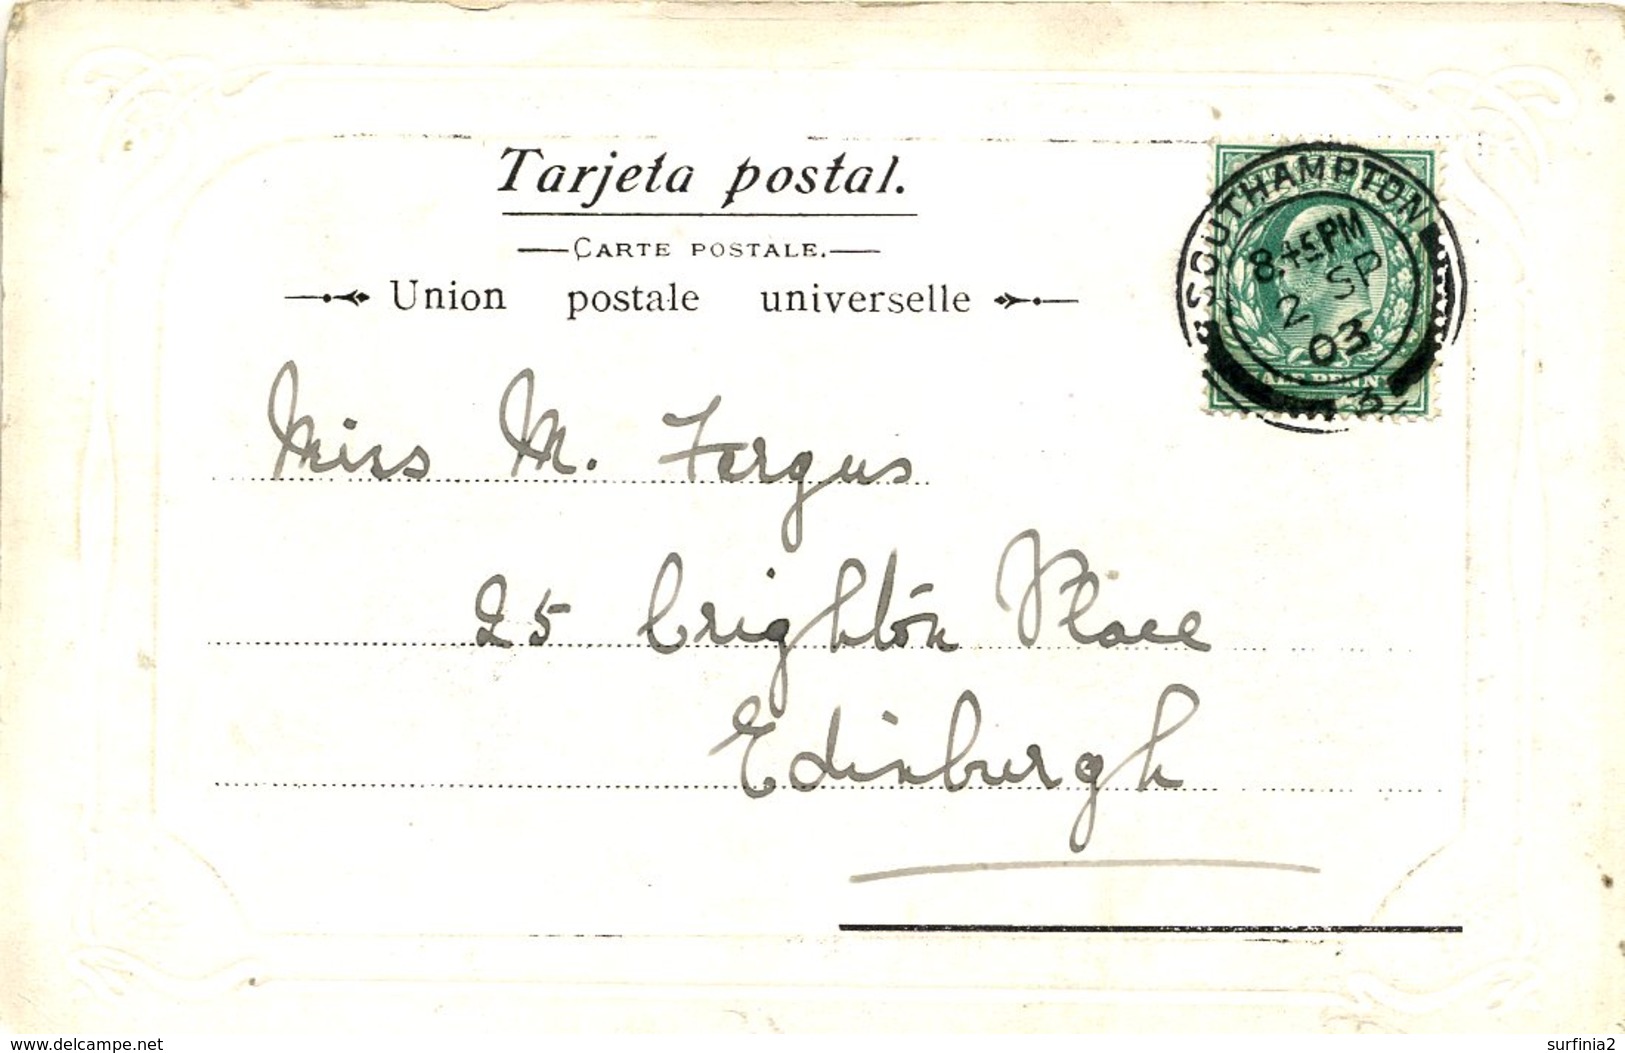 Tarjeta postal.
CARTE POSTALE.
Union postale universelle
SOUTHAMPTON
8.45PM
2 SP
03
Miss M. Fergus
25 Crighton Place
Edinburgh
www.delcampe.net
surfinia2